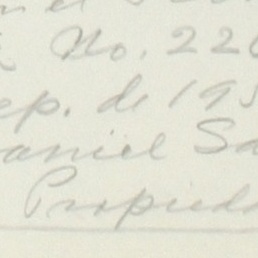 No. 226
ep. de 195
aniel Sa
Propieda